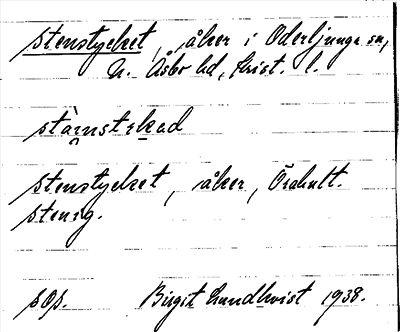 Stenstycket, åker i Oderljunga sn,
N. Åsbo hd, Krist. l.
stenstycket, åker, Örahult.
stenig.
sOs. Birgit Lundkvist 1938.